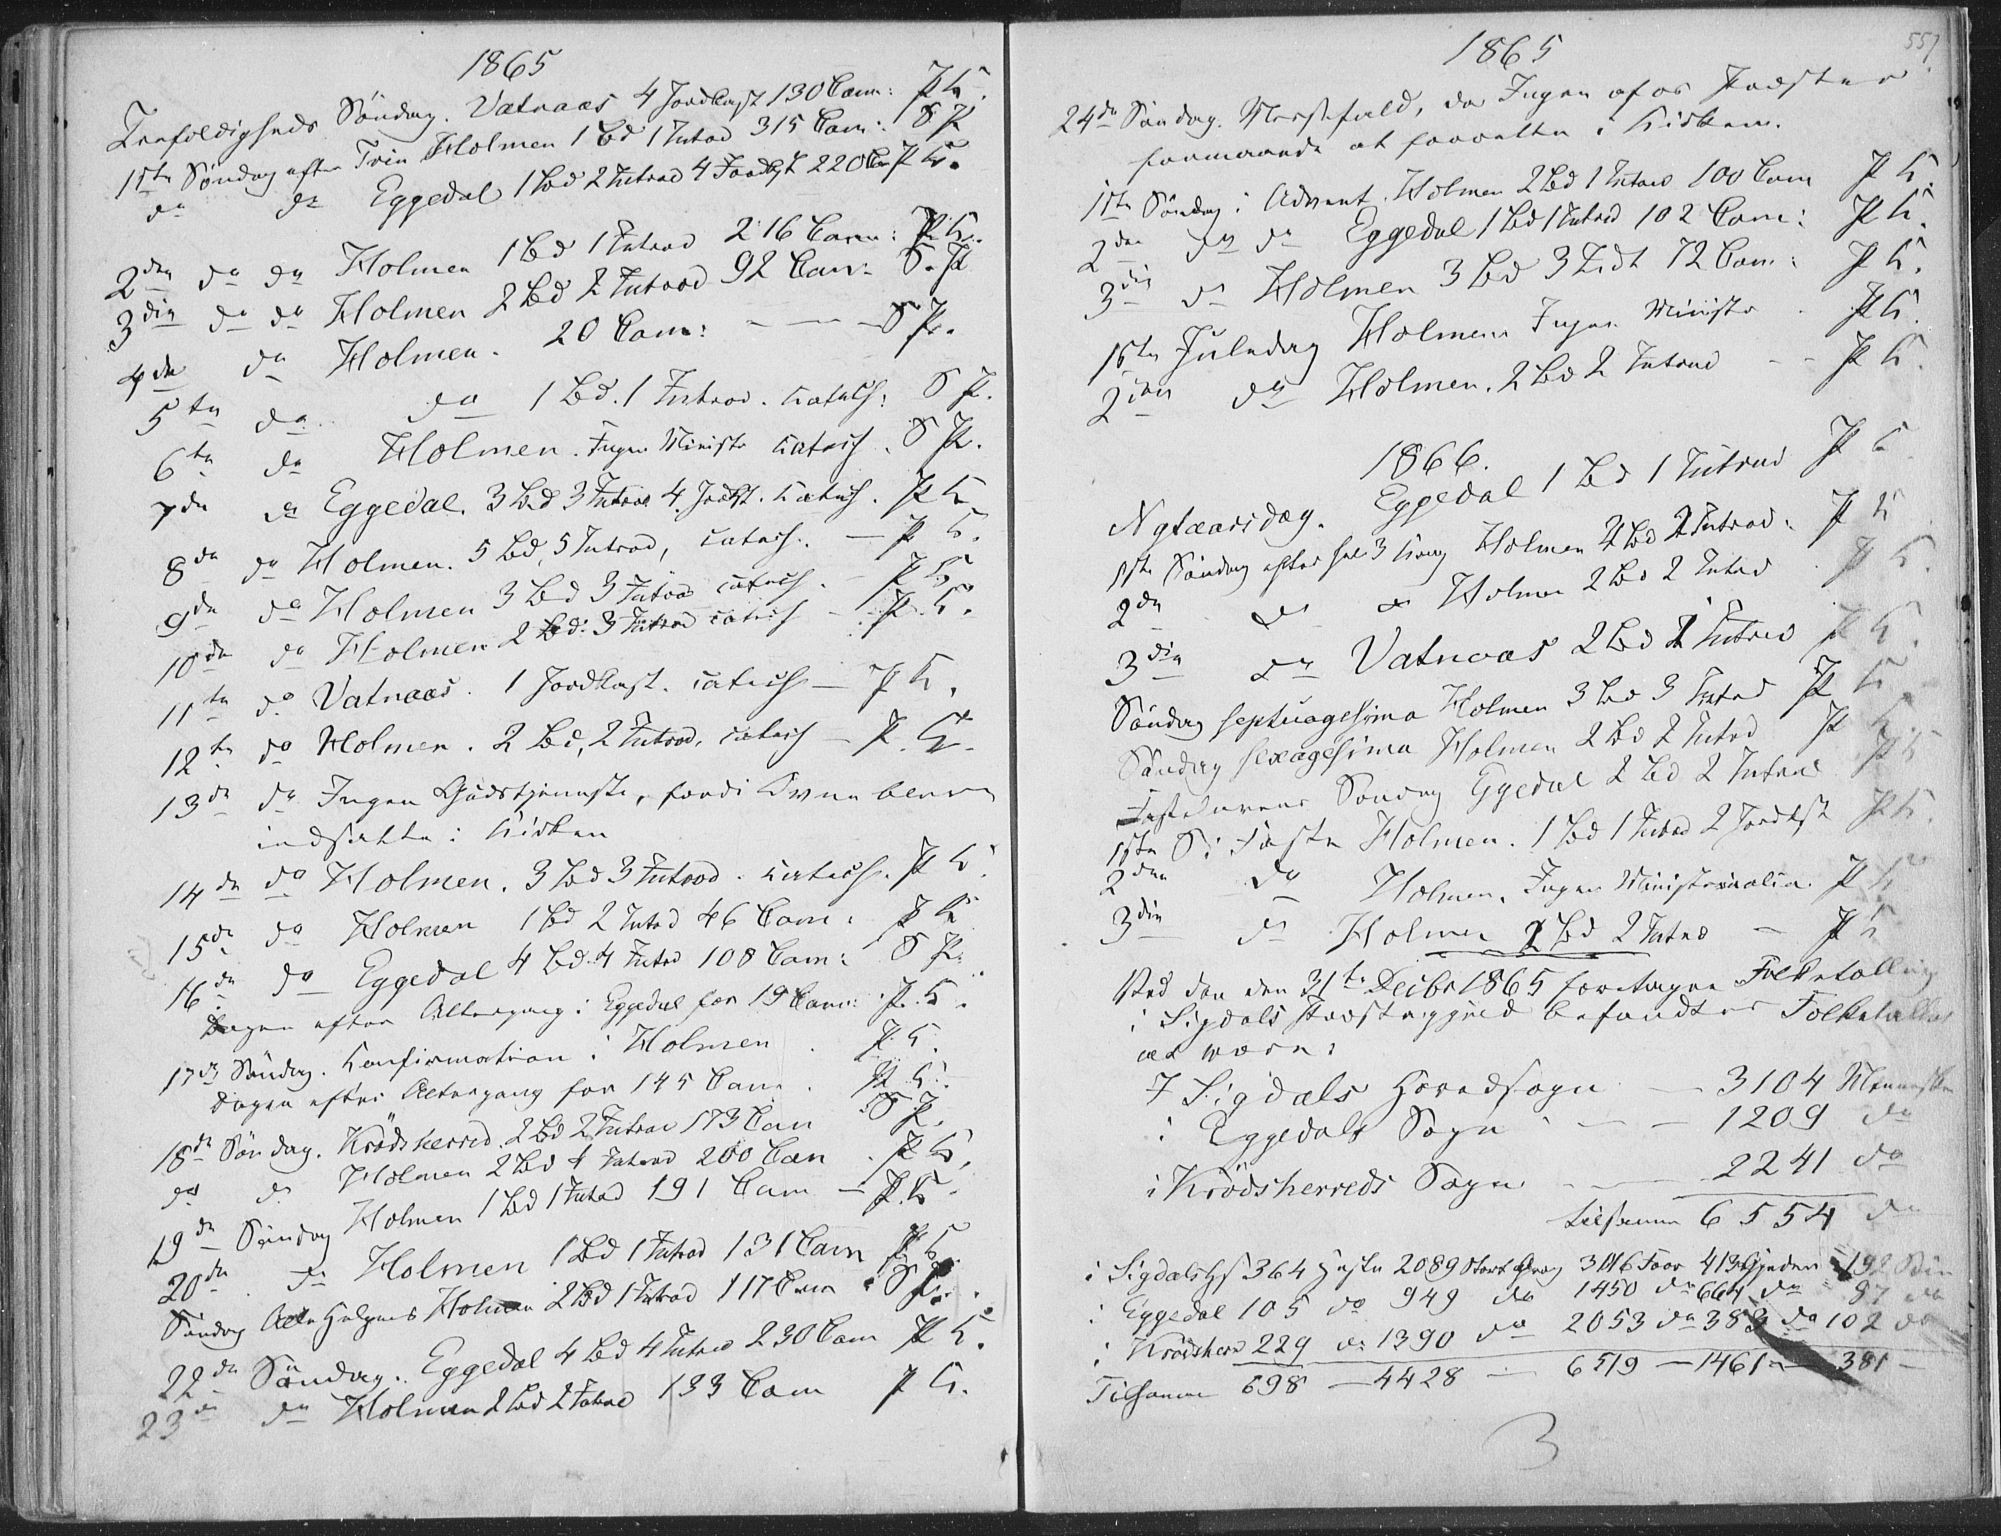 1865
Trefoldigheds Söndag. Vatnaas 4 Jordkast 130 Com: P K.
1ste Söndag efter Trin Holmen 1 Bd 1 Introd 315 Com: S P
do do Eggedal 1 Bd 2 Introd 4 Jordkst 220 Com P K.
2den do do Holmen 1 Bd 1 Introd 216 Com: P. K.
3die do do Holmen 2 Bd 2 Introd 92 Com: S. P
4de do Holmen. 20 Com: — — — S P.
5te do do 1 Bd. 1 Introd. Catech: S P.
6te do Holmen. Ingen Ministr Catech. S P.
7de do Eggedal. 3 Bd 3 Introd 4 Jordkst. Catech. P K
8de do Holmen. 5 Bd, 5 Introd, Catech. — P K.
9de do Holmen 3 Bd 3 Introd Catech. — P K.
10de do Holmen 2 Bd: 3 Introd Catech — P. K.
11te do Vatnaas. 1 Jordkast. Catech — P K.
12te do Holmen. 2 Bd, 2 Introd, Catech — P. K.
13de do Ingen Gudstjeneste, fordi Ovne bleve
indsatte i Kirken
14de do Holmen. 3 Bd 3 Introd. Catech. P K.
15de do Holmen 1 Bd 2 Introd 46 Com: P K
16de do Eggedal 4 Bd 4 Introd 108 Com: S P.
Dagen efter Altergang i Eggedal for 19 Com: P. K.
17de Söndag. Konfirmation i Holmen. P. K.
Dagen efter Altergang for 145 Com. P K.
18de Söndag. Krödsherred. 2 Bd 2 Introd 173 Com S P.
do do Holmen 2 Bd 1 Introd 200 Com. P K.
19de Söndag Holmen 1 Bd 1 Introd 191 Com — P. K.
20de do Holmen 1 Bd 1 Introd 131 Com P K.
Söndag Alle Helgens Holmen 2 Bd 1 Introd 117 Com S P.
22de Söndag. Eggedal 4 Bd 4 Introd 230 Com P K.
23de do Holmen 2 Bd 2 Introd 133 Com P K.
557
1865
24de Söndag. Messefald, da Ingen af os Præster
formaaede at forrette i Kirken.
1ste Söndag i Advent. Holmen 2 Bd 1 Introd 100 Com P K.
2den do do Eggedal 1 Bd 1 Introd 102 Com: P K.
3die do Holmen 3 Bd 3 Itdt 72 Com: P K.
1ste Juledag Holmen Ingen Ministr. P K.
2den do Holmen. 2 Bd 2 Introd — — P K.
1866.
Nytaarsdag. Eggedal 1 Bd 1 Introd P K
1ste Söndag efter hel 3 Kong Holmen 2 Bd 2 Introd. P K
2den do do Holmen 2 Bd 2 Introd. P K.
3die do Vatnaas 2 Bd 2 Introd P K.
Söndag septuagesima Holmen 3 Bd 3 Introd P K
Söndag sexagesima Holmen 2 Bd 2 Introd P K.
Fastelavens Söndag Eggedal 2 Bd 2 Introd P K
1ste S. i Faste Holmen. 1 Bd 1 Introd 2 Jordkst P K.
2den do Holmen. Ingen Ministerialia. P K
3die do Holmen 2 Bd 2 Introd — P K
Ved den den 31te Decbr 1865 foretagne Folketælling
i Sigdals Præstegjeld befandtes Folketallet
at være:
I Sigdals Hovedsogn — 3104 Mennesker
i Eggedals Sogn — — 1209 do
i Krödsherreds Sogn — — 2241 do
tilsammen 6554 do
i Sigdals HS 364 Heste 2089 Stort Qvæg 3016 Faar 413 Gjeder 192 Sviin
i Eggedal 105 do 949 do 1450 do 664 do 87 do
i Krödsherr 229 do 1390 do 2053 do 383 do 102 do
Tilsammen 698 — 4428 — 6519 — 1461 — 381 —